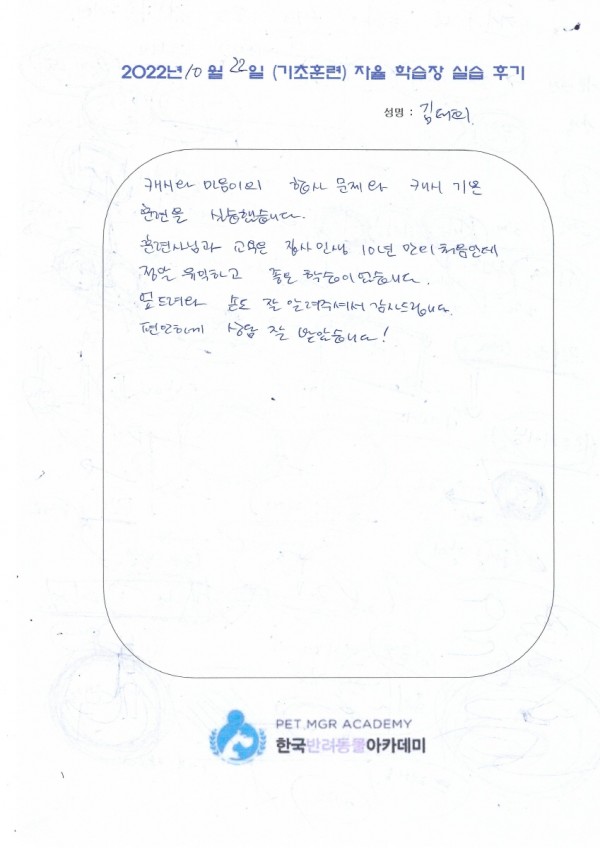 2022년 10월 22일 (기초훈련) 자율 학습장 실습 후기
성명 : 김태희
캐시와 마음이의 행사 문제와 캐시 기본
훈련을 실습했습니다.
훈련사님과 교육은 집사인생 10년 만의 처음인데
정말 유익하고 좋은 학습이었습니다.
엎드려와 손도 잘 알려주셔서 감사드립니다.
편안하게 상담 잘 받았습니다!
PET MGR ACADEMY
한국반려동물아카데미